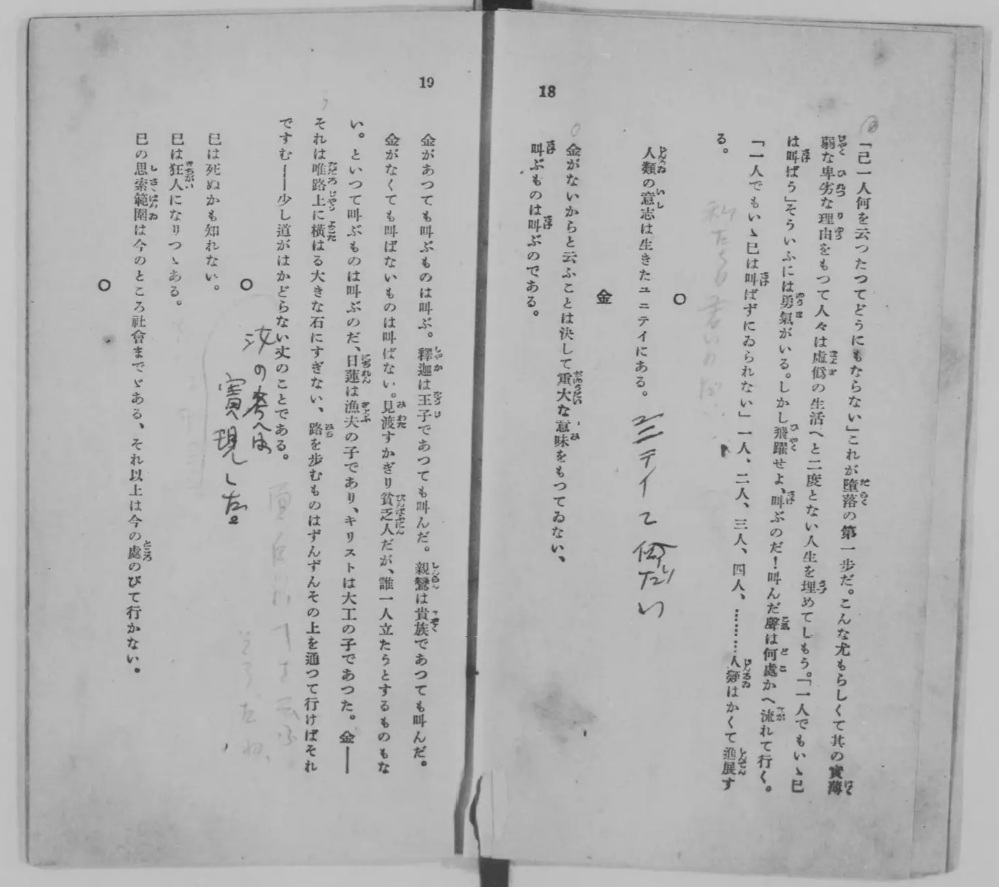 18
「己一人何を云つたつてどうにもならない」これが墮落の第一步だ。こんな尤もらしくて其の實薄
弱な卑劣な理由をもつて人々は虛僞の生活へと二度とない人生を埋めてしもう。「一人でもいゝ巳
は叫ばう」そういふには勇氣がいる。しかし飛躍せよ、叫ぶのだ！叫んだ聲は何處かへ流れて行く。
「一人でもいゝ巳は叫ばずにゐられない」一人、二人、三人、四人、…………人類はかくて進展す
る。
○
人類の意志は生きたユニテイにある。
金
金がないからと云ふことは決して重大な意味をもつてゐない、
叫ぶものは叫ぶのである。
19
金があつても叫ぶものは叫ぶ。釋迦は王子であつても叫んだ。親鸞は貴族であつても叫んだ。
金がなくても叫ばないものは叫ばない。見渡すかぎり貧乏人だが、誰一人立たうとするものもな
い。といつて叫ぶものは叫ぶのだ、日蓮は漁夫の子であり、キリストは大工の子であつた。金――
それは唯路上に橫はる大きな石にすぎない、路を步むものはずんずんその上を通つて行けばそれ
ですむ――少し道がはかどらない丈のことである。
○
汝の考へは
實現した。
巳は死ぬかも知れない。
巳は狂人になりつゝある。
巳の思索範圍は今のところ社會までゞある、それ以上は今の處のびて行かない。
○